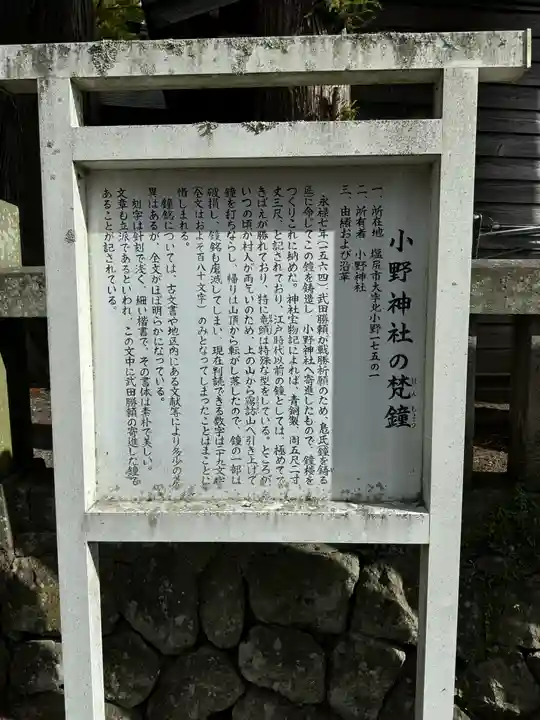 小野神社の梵鐘
ぼんしょう
一、所在地 塩尻市大字北小野一七五の一
二、所有者 小野神社
三、由緒および沿革
永禄七年(一五六四)、武田勝頼が戦勝祈願のため、
に命じてこの鐘を鋳造し、小野神社へ寄進したもので、鐘楼を
つくりこれに納めた。神社宝物記によれば、青銅製、周五尺一寸
丈三尺、と記されており、江戸時代以前の鐘としては、極めてで
きばえが勝れており、特に竜頭は特殊な型をしている。ところが、
いつの頃か村人が雨乞いのため、上の山から霧訪山へ引き上げて
鐘を打ちならし、帰りは山頂から転がし落したので、鐘の一部は
破損し、鐘銘も磨滅してしまい、現在判読できる数字は二十六文字
(全文はおよそ百八十文字)のみとなってしまったことはまことに
惜しまれる。
鐘銘については、古文書や地区内にある文献等により多少の差
異はあるが、全文がほぼ明らかになっている。
刻字は針刻で浅く、細い楷書で、その書体は素朴で美しい。
文章も立派であるといわれ、この文中に武田勝頼の寄進した鐘で
あることが記されている。